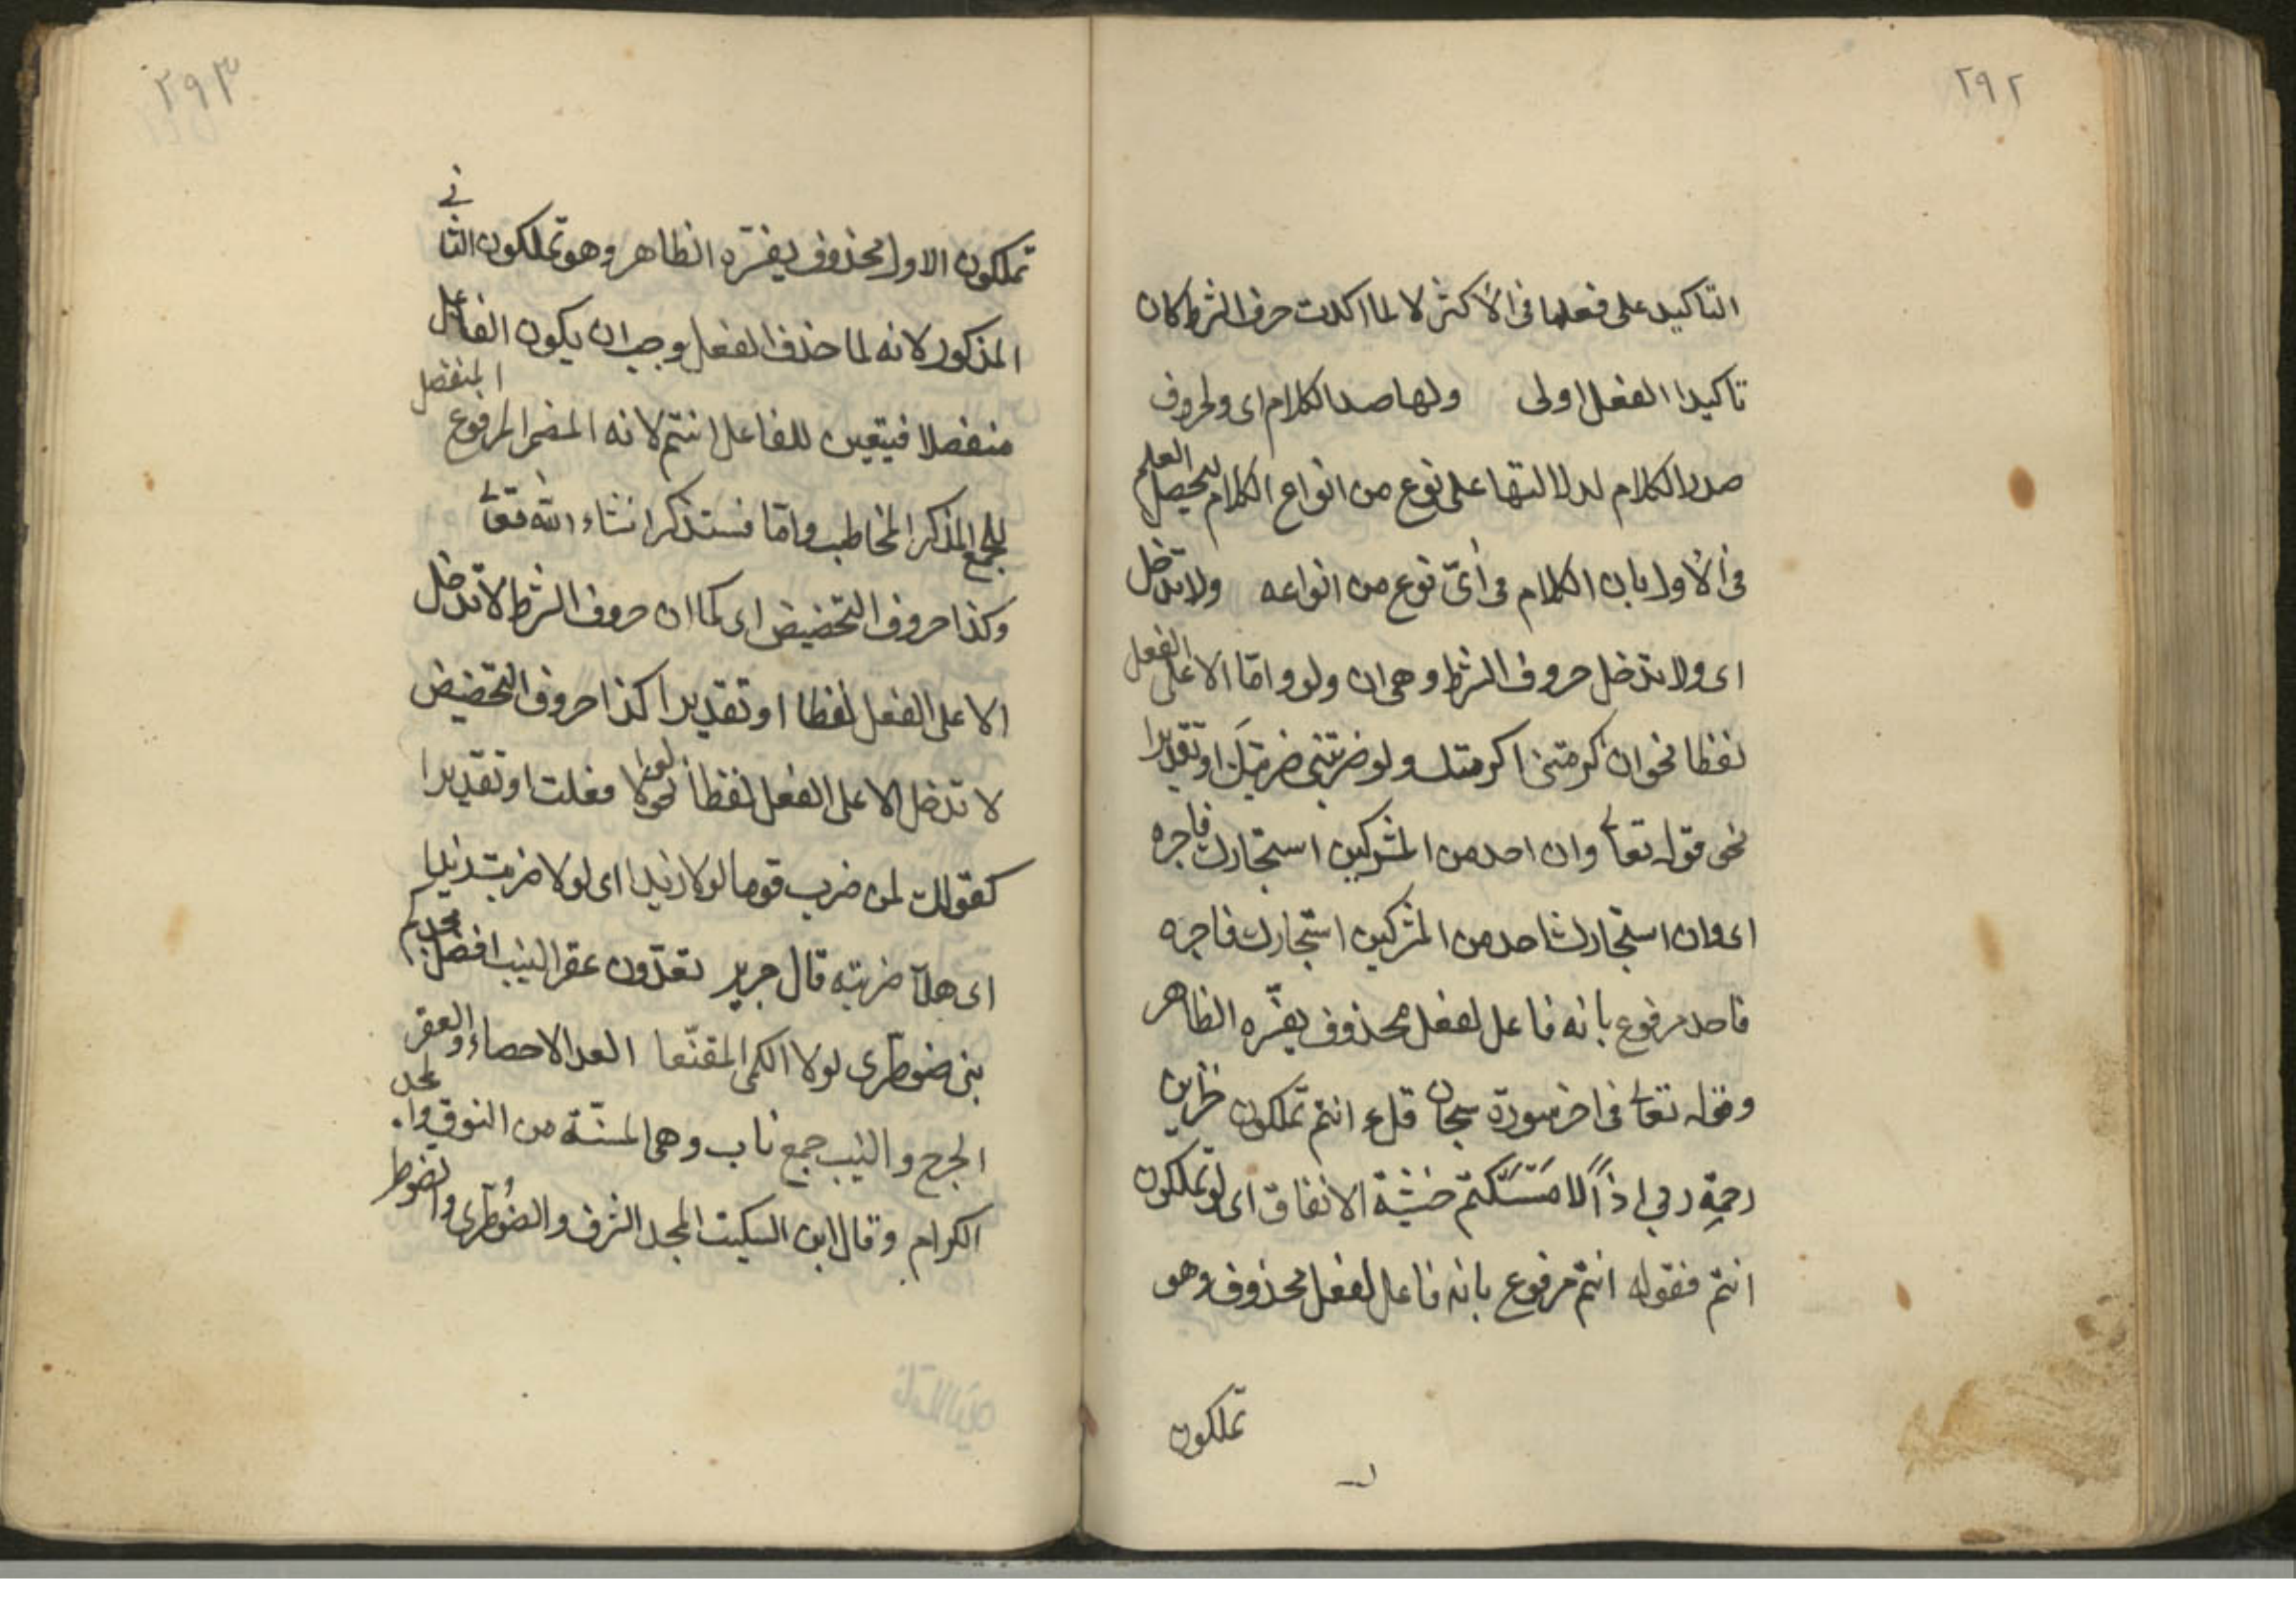 ٢٩٢
التاكيد على فعلها فى الأكثر لا لما اكدت حرف الشرط كان
تاكيدا الفعل اولى ولها صدر الكلام اى ولحروف
صدر الكلام لدلالتها على نوع من انواع الكلام ليحصل العلم
فى الأول بان الكلام فى أىّ نوع من انواعه ولا تدخل
اى ولا تدخل حروف الشرط وهى ان ولو وامّا الا على الفعل
لفظا نحو ان اكرمتنى اكرمتك ولو ضربتنى ضربتك او تقديرا
نحو قوله تعالى وان احد من المشركين استجارك فاجره
اى وان استجارك احد من المشركين استجارك فاجره
فاحد مرفوع بانه فاعل لفعل محذوف يفسّره الظاهر
وقوله تعالى فى اخر سورة سبحان قل لو انتم تملكون خزاين
رحمة ربي اذاً لامسَكتم خشية الانفاق اى لو تملكون
انتم فقوله انتم مرفوع بانه فاعل لفعل محذوف وهو
تملكون
٢٩٣
تملكون الاول محذوف يفسّره الظاهر وهو تملكون الثانى
المذكور لانه لما حذف الفعل وجب ان يكون الفاعل
منفصلا فيتعين للفاعل انتم لانه المضمر المرفوع المنفصل
للجمع المذكر المخاطب وامّا فستذكر انشاء الله تعالى
وكذا حروف التحضيض اى كما ان حروف الشرط لا تدخل
الا على الفعل لفظا او تقديرا كذا حروف التحضيض
لا تدخل الا على الفعل لفظا نحو لولا فعلت او تقديرا
كقولك لمن ضرب قوما لولا زيدا اى لولا ضربت زيدا
اى هلّا ضربته قال جرير تعدّون عقر النيب افضل مجدكم
بنى ضوطرى لولا الكمى المقنّعا العد الاحصاء والعقر
الجرح والنيب جمع ناب وهى المسنّة من النوق والمجد
الكرام وقال ابن السكيت المجد الشرف والضوطرى والضوطر